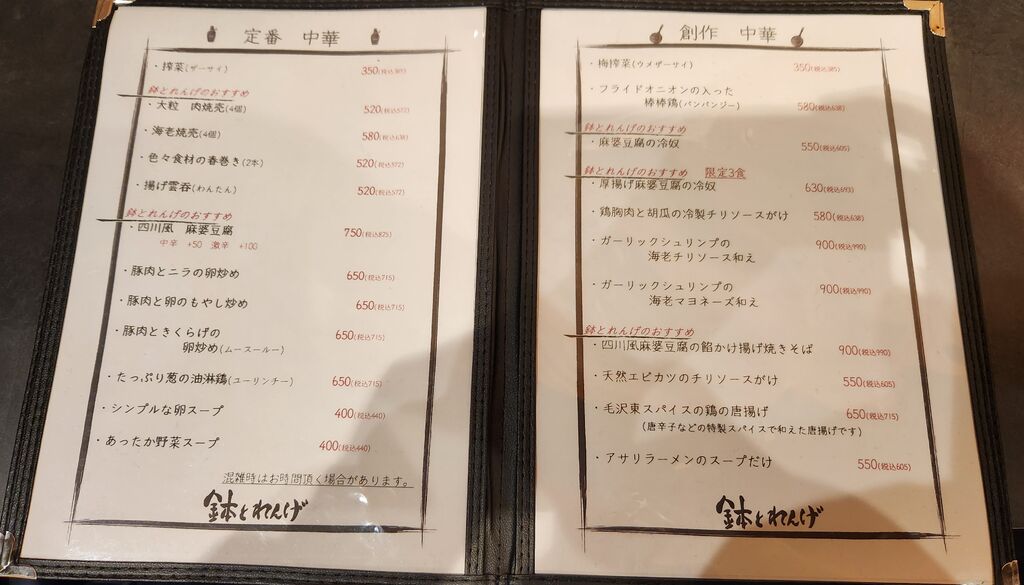 定番 中華
・搾菜(ザーサイ) 350(税込385)
鉢とれんげのおすすめ
・大粒 肉焼売(4個) 520(税込572)
・海老焼売(4個) 580(税込638)
・色々食材の春巻き(2本) 520(税込572)
・揚げ雲呑(わんたん) 520(税込572)
鉢とれんげのおすすめ
・四川風 麻婆豆腐 750(税込825)
中辛 +50 激辛 +100
・豚肉とニラの卵炒め 650(税込715)
・豚肉と卵のもやし炒め 650(税込715)
・豚肉ときくらげの
卵炒め(ムースールー) 650(税込715)
・たっぷり葱の油淋鶏(ユーリンチー) 650(税込715)
・シンプルな卵スープ 400(税込440)
・あったか野菜スープ 400(税込440)
混雑時はお時間頂く場合があります。
鉢とれんげ
創作 中華
・梅搾菜(ウメザーサイ) 350(税込385)
・フライドオニオンの入った
棒棒鶏(バンバンジー) 580(税込638)
鉢とれんげのおすすめ
・麻婆豆腐の冷奴 550(税込605)
鉢とれんげのおすすめ 限定3食
・厚揚げ麻婆豆腐の冷奴 630(税込693)
・鶏胸肉と胡瓜の冷製チリソースがけ 580(税込638)
・ガーリックシュリンプの 900(税込990)
海老チリソース和え
・ガーリックシュリンプの 900(税込990)
海老マヨネーズ和え
鉢とれんげのおすすめ
・四川風麻婆豆腐の餡かけ揚げ焼きそば 900(税込990)
・天然エビカツのチリソースがけ 550(税込605)
・毛沢東スパイスの鶏の唐揚げ 650(税込715)
(唐辛子などの特製スパイスで和えた唐揚げです)
・アサリラーメンのスープだけ 550(税込605)
鉢とれんげ